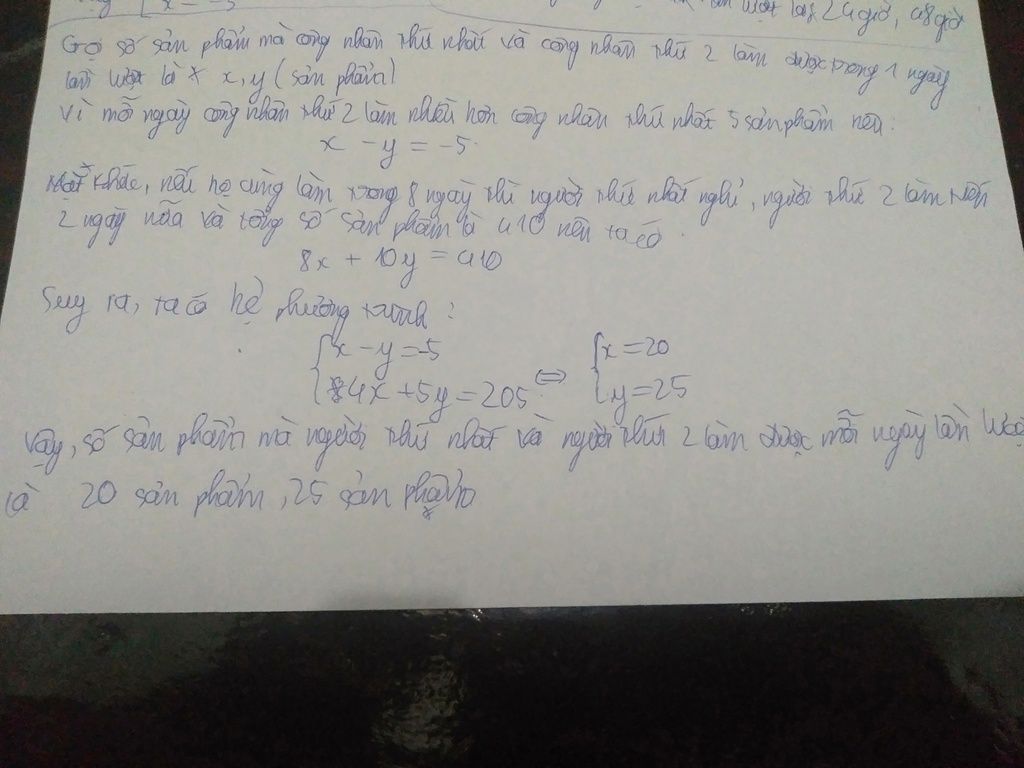 x = -5
lần lượt là 24 giờ, 48 giờ
Gọi số sản phẩm mà công nhân thứ nhất và công nhân thứ 2 làm được trong 1 ngày
lần lượt là x, y (sản phẩm)
Vì mỗi ngày công nhân thứ 2 làm nhiều hơn công nhân thứ nhất 5 sản phẩm nên:
x - y = -5.
Mặt khác, nếu họ cùng làm trong 8 ngày thì người thứ nhất nghỉ, người thứ 2 làm tiếp
2 ngày nữa và tổng số sản phẩm là 410 nên ta có
8x + 10y = 410
Suy ra, ta có hệ phương trình:
{x - y = -5
{4x + 5y = 205 <=> {x = 20
{y = 25
Vậy, số sản phẩm mà người thứ nhất và người thứ 2 làm được mỗi ngày lần lượt
là 20 sản phẩm, 25 sản phẩm